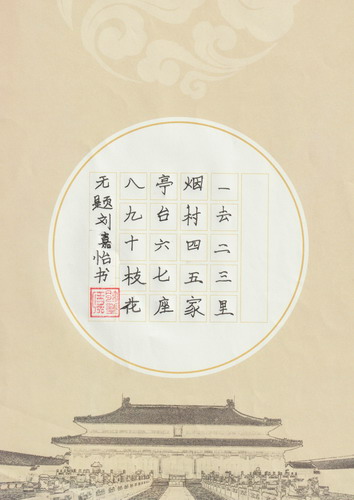 一去二三里
烟村四五家
亭台六七座
八九十枝花
无题刘嘉怡书